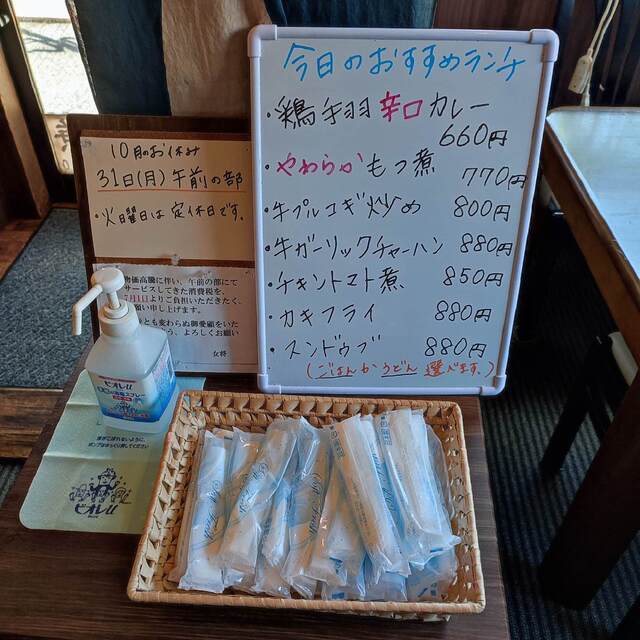 今日のおすすめランチ
・鶏手羽辛口カレー
660円
・やわらかもつ煮 770円
・牛プルコギ炒め 800円
・牛ガーリックチャーハン 880円
・チキントマト煮 850円
・カキフライ 880円
・スンドゥブ 880円
(ごはんかうどん選べます。)
10月のお休み
31日(月)午前の部
・火曜日は定休日です。
物価高騰に伴い、午前の部にて
サービスしてきた消費税を、
7月1日よりご負担いただきたく、
お願い申し上げます。
とも変わらぬ御愛顧をいた
う、よろしくお願い
女将
ビオレu
ビオレu